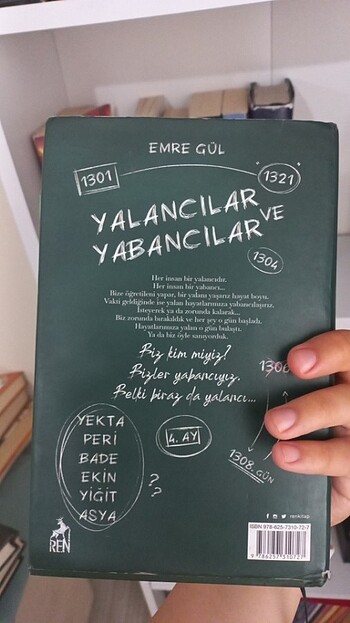 EMRE GÜL
1301
1321
YALANCILAR VE
YABANCILAR
1304
Her insan bir yalancıdır.
Her insan bir yabancı...
Bize öğretileni yapar, bir yalanı yaşarız hayat boyu.
Vakti geldiğinde ise yalan hayatlarımıza yabancılaşırız.
İsteyerek ya da zorunda kalarak...
Biz zorunda bırakıldık ve her şey o gün başladı.
Hayatlarımıza yalan o gün bulaştı.
Ya da biz öyle sanıyorduk.
Biz kim miyiz?
Bizler yabancıyız.
Belki biraz da yalancı...
1308. GÜN
4. AY
YEKTA
PERİ
BADE
EKİN
YİĞİT
ASYA
?
?
REN
renkitap
ISBN 978-625-7310-72-7
9 786257 310727